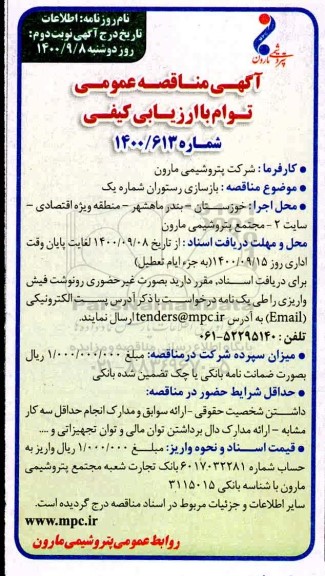 نام روزنامه: اطلاعات
تاریخ درج آگهی نوبت دوم:
روز دوشنبه ۱۴۰۰/۹/۸
پتروشیمی مارون
آگهی مناقصه عمومی
توام با ارزیابی کیفی
شماره ۱۴۰۰/۶۱۳
• کارفرما: شرکت پتروشیمی مارون
• موضوع مناقصه: بازسازی رستوران شماره یک
• محل اجرا: خوزستان - بندر ماهشهر - منطقه ویژه اقتصادی -
سایت ۲ - مجتمع پتروشیمی مارون
محل و مهلت دریافت اسناد: از تاریخ ۱۴۰۰/۰۹/۰۸ لغایت پایان وقت
اداری روز ۱۴۰۰/۰۹/۱۵ (به جزء ایام تعطیل)
برای دریافت اسناد، مقرر دارید بصورت غیر حضوری رونوشت فیش
واریزی را طی یک نامه درخواست با ذکر آدرس پست الکترونیکی
(Email) به آدرس tenders@mpc.ir ارسال نمایند.
تلفن: ۰۶۱-۵۲۲۹۵۱۴۰
• میزان سپرده شرکت در مناقصه: مبلغ ۱/۰۰۰/۰۰۰/۰۰۰ ریال
بصورت ضمانت نامه بانکی یا چک تضمین شده بانکی
• حداقل شرایط حضور در مناقصه:
داشتن شخصیت حقوقی - ارائه سوابق و مدارک انجام حداقل سه کار
مشابه - ارائه مدارک دال بر داشتن توان مالی و توان تجهیزاتی و ....
• قیمت اسناد و نحوه واریز: مبلغ ۱/۰۰۰/۰۰۰ ریال واریز به
حساب شماره ۶۰۱۷۰۳۲۲۸۱ بانک تجارت شعبه مجتمع پتروشیمی
مارون با شناسه بانکی ۳۱۱۵۰۱۵
سایر اطلاعات و جزئیات مربوط در اسناد مناقصه درج گردیده است.
www.mpc.ir
روابط عمومی پتروشیمی مارون